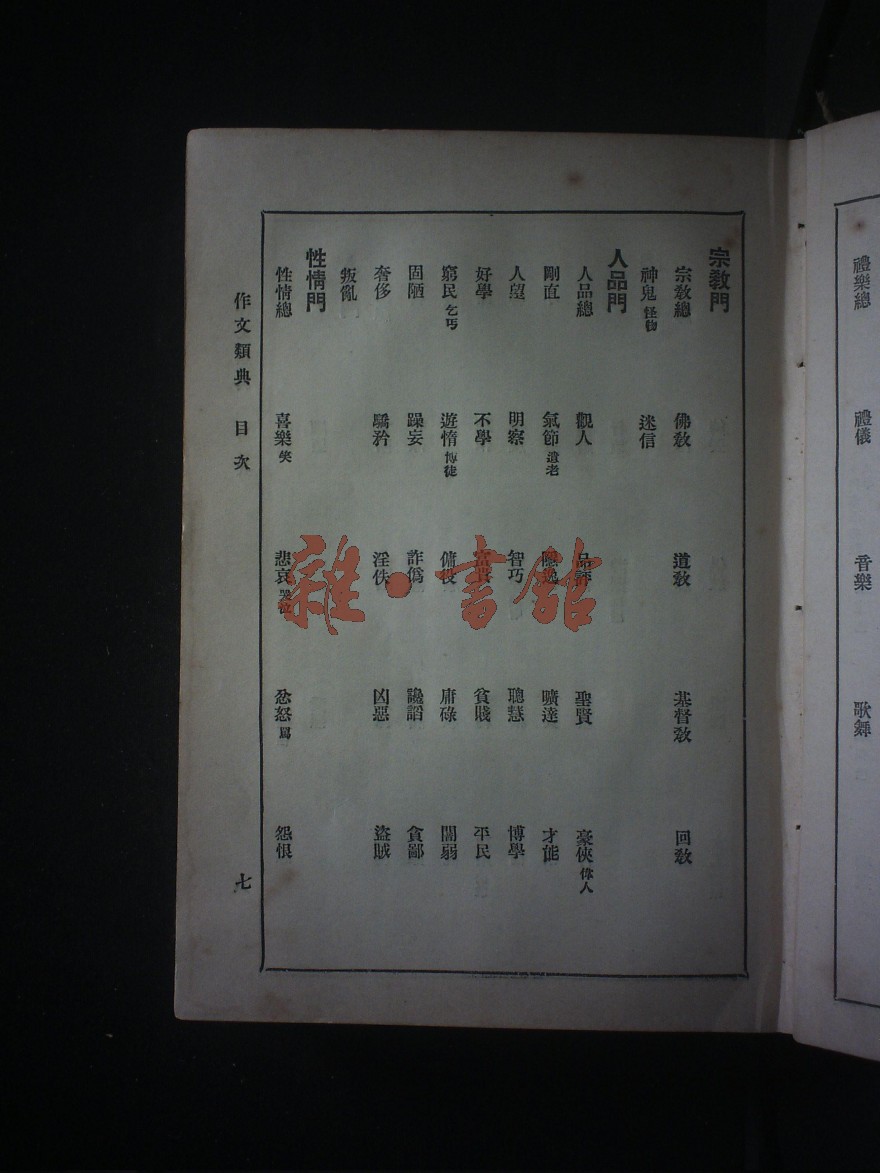 禮樂總 禮儀 音樂 歌舞
宗教門
宗教總 佛教 道教 基督教 回教
神鬼 怪物 迷信
人品門
人品總 觀人 品評 聖賢 豪俠 偉人
剛直 氣節 遺老 隱逸 曠達 才能
人望 明察 智巧 聰慧 博學
好學 不學 富貴 貧賤 平民
窮民 乞丐 遊惰 博徒 傭役 庸碌 闇弱
固陋 躁妄 詐僞 讒謟 貪鄙
奢侈 驕矜 淫佚 凶惡 盜賊
叛亂
性情門
性情總 喜樂 笑 悲哀 哭泣 忿怒 罵 怨恨
作文類典 目次 七
雜·書館